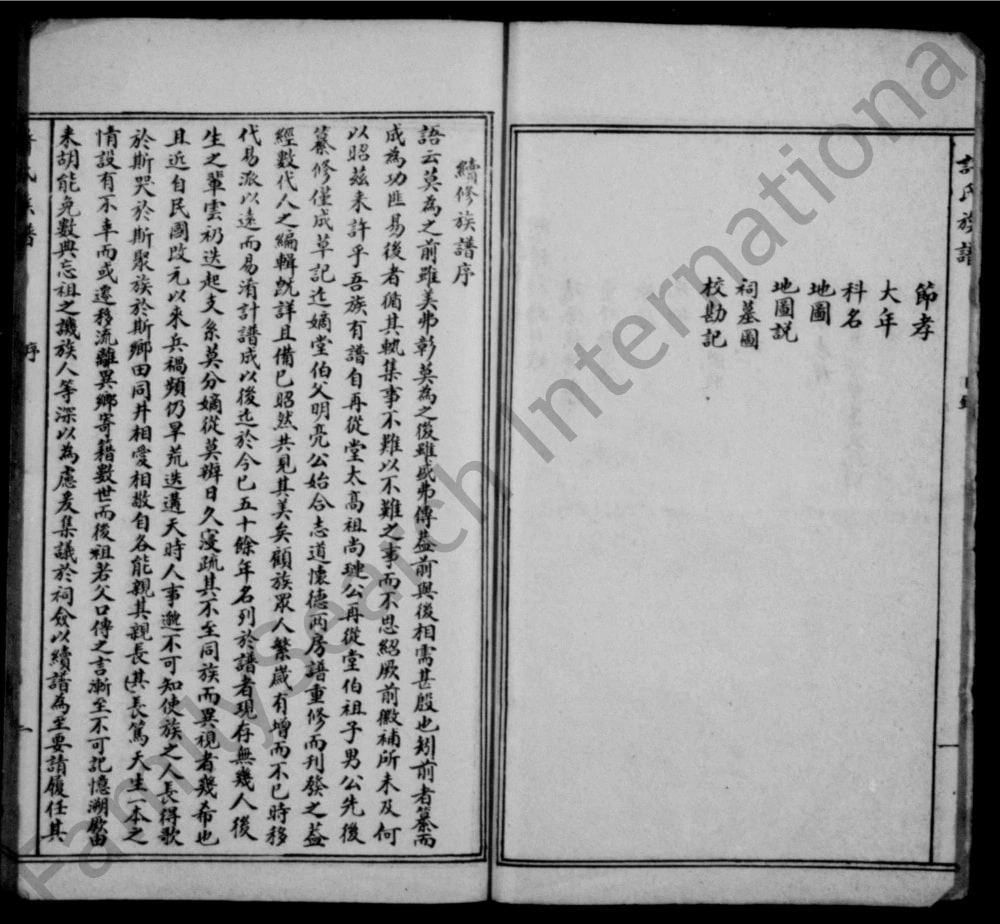 許氏族譜
目錄
一
節孝
大年
科名
地圖
地圖説
祠墓圖
校勘記
續修族譜序
語云莫為之前雖美弗彰莫為之後雖盛弗傳蓋前與後相需甚殷也矧前者纂而
成為功匪易後者循其軌集事不難以不難之事而不思紹厥前徽補所未及何
以昭茲来許乎吾族有譜自再從堂太高祖尚璉公再從堂伯祖子男公先後
纂修僅成草記迄嫡堂伯父明亮公始合志道懷德两房譜重修而刊發之蓋
經數代人之編輯既詳且備已昭然共見其美矣顧族眾人繁歲有增而不已時移
代易派以遠而易淆計譜成以後迄於今已五十餘年名列於譜者現存無幾人後
生之輩雲礽迭起支系莫分嫡從莫辨日久寖疏其不至同族而異視者幾希也
且近自民國改元以来兵禍頻仍旱荒迭遘天時人事邈不可知使族之人長得歌
於斯哭於斯聚族於斯鄉田同井相愛相敬自各能親其親長其長篤天生一本之
情設有不幸而或遷移流離異鄉寄籍數世而後祖若父口傳之言漸至不可記憶溯厥由
来胡能免數典忘祖之譏族人等深以為慮爰集議於祠僉以續譜為至要請履任其
氏族譜
序
一
FamilySearch International